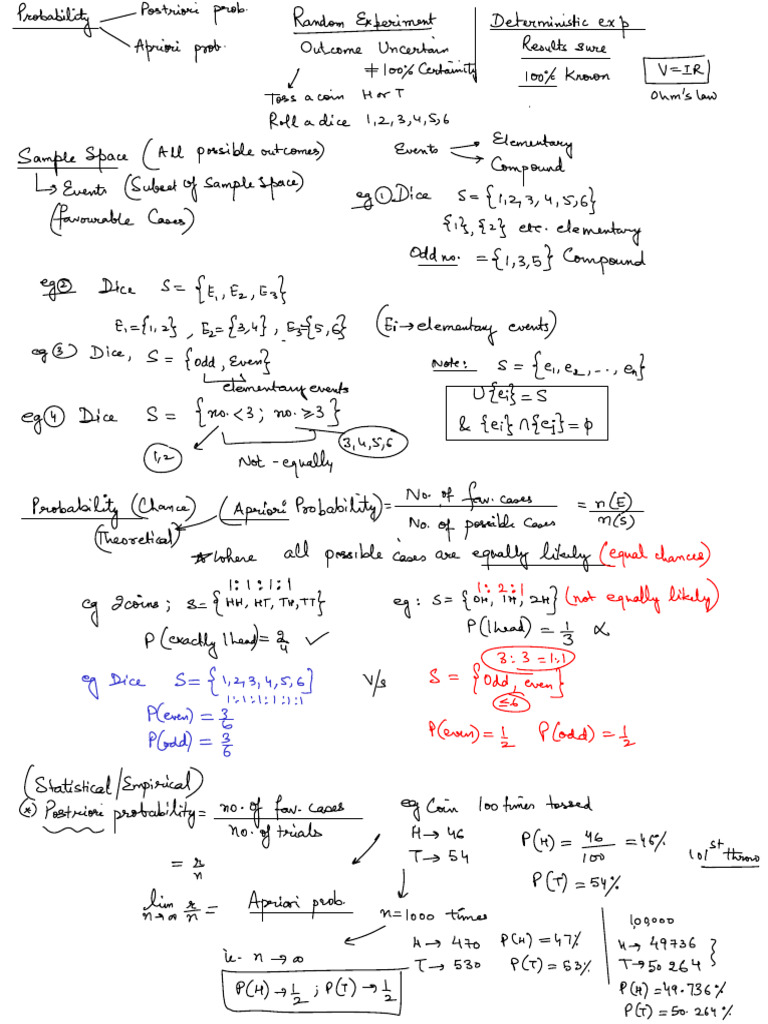 Probability
Postriori prob.
Apriori prob.
Random Experiment
Outcome Uncertain
≠100% Certainity
Toss a coin H or T
Roll a dice 1,2,3,4,5,6
Deterministic exp
Results sure
100% Known
V=IR
Ohm's law
Sample Space (All possible outcomes)
↳ Events (Subset of Sample Space)
(favourable Cases)
Events
Elementary
Compound
eg ① Dice S={1,2,3,4,5,6}
{1}, {2} etc. elementary
Odd no. = {1,3,5} Compound
eg ② Dice S= {E₁, E₂, E₃}
E₁={1,2}, E₂={3,4}, E₃={5,6} (Ei→elementary events)
eg ③ Dice, S= {Odd, Even}
elementary events
Note: S= {e₁,e₂,..., en}
U{ei}=S
& {ei} ∩{ej}=φ
eg ④ Dice S= {no.<3; no. ≥3}
1,2
3,4,5,6
Not-equally
Probability (Chance)
(Theoretical)
(Apriori Probability) = No. of fav. cases / No. of possible cases = n(E)/n(S)
☆ Where all possible cases are equally likely (equal chances)
1:1:1:1
eg 2coins; S={HH, HT, TH, TT}
P(exactly 1 head)= 2/4 ✓
1:2:1
eg: S={0H, 1H, 2H} (not equally likely)
P(1head) = 1/3 ∝
eg Dice S={1,2,3,4,5,6}
1:1:1:1:1:1
P(even) = 3/6
P(odd) = 3/6
V/s
3:3 =1:1
S = {Odd, even}
≤6
P(even)= 1/2 P(odd)= 1/2
(Statistical/Empirical)
(*) Postriori probability = no. of fav. cases / no. of trials
= r/n
lim n→∞ r/n = Apriori prob.
ie. n→∞
P(H)→1/2 ; P(T)→1/2
eg Coin 100 times tossed
H→ 46
T→ 54
P(H) = 46/100 = 46%
P(T)= 54%
101st throw
n=1000 times
H→ 470 P(H)=47%
T→ 530 P(T)= 53%
1,00,000
H→ 49736
T→ 50264
P(H)=49.736%
P(T)=50.264%